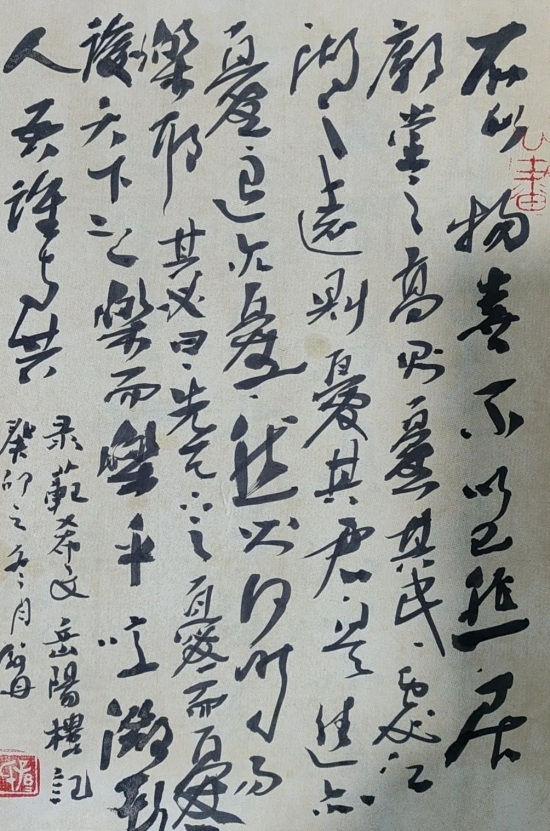 不以物喜不以己悲居
廟堂之高則憂其民處江
湖之遠則憂其君是進亦
憂退亦憂然則何時而
樂耶其必曰先天下之憂而憂
後天下之樂而樂乎噫微斯
人吾誰與共
录範希文岳陽樓記
癸卯之冬月